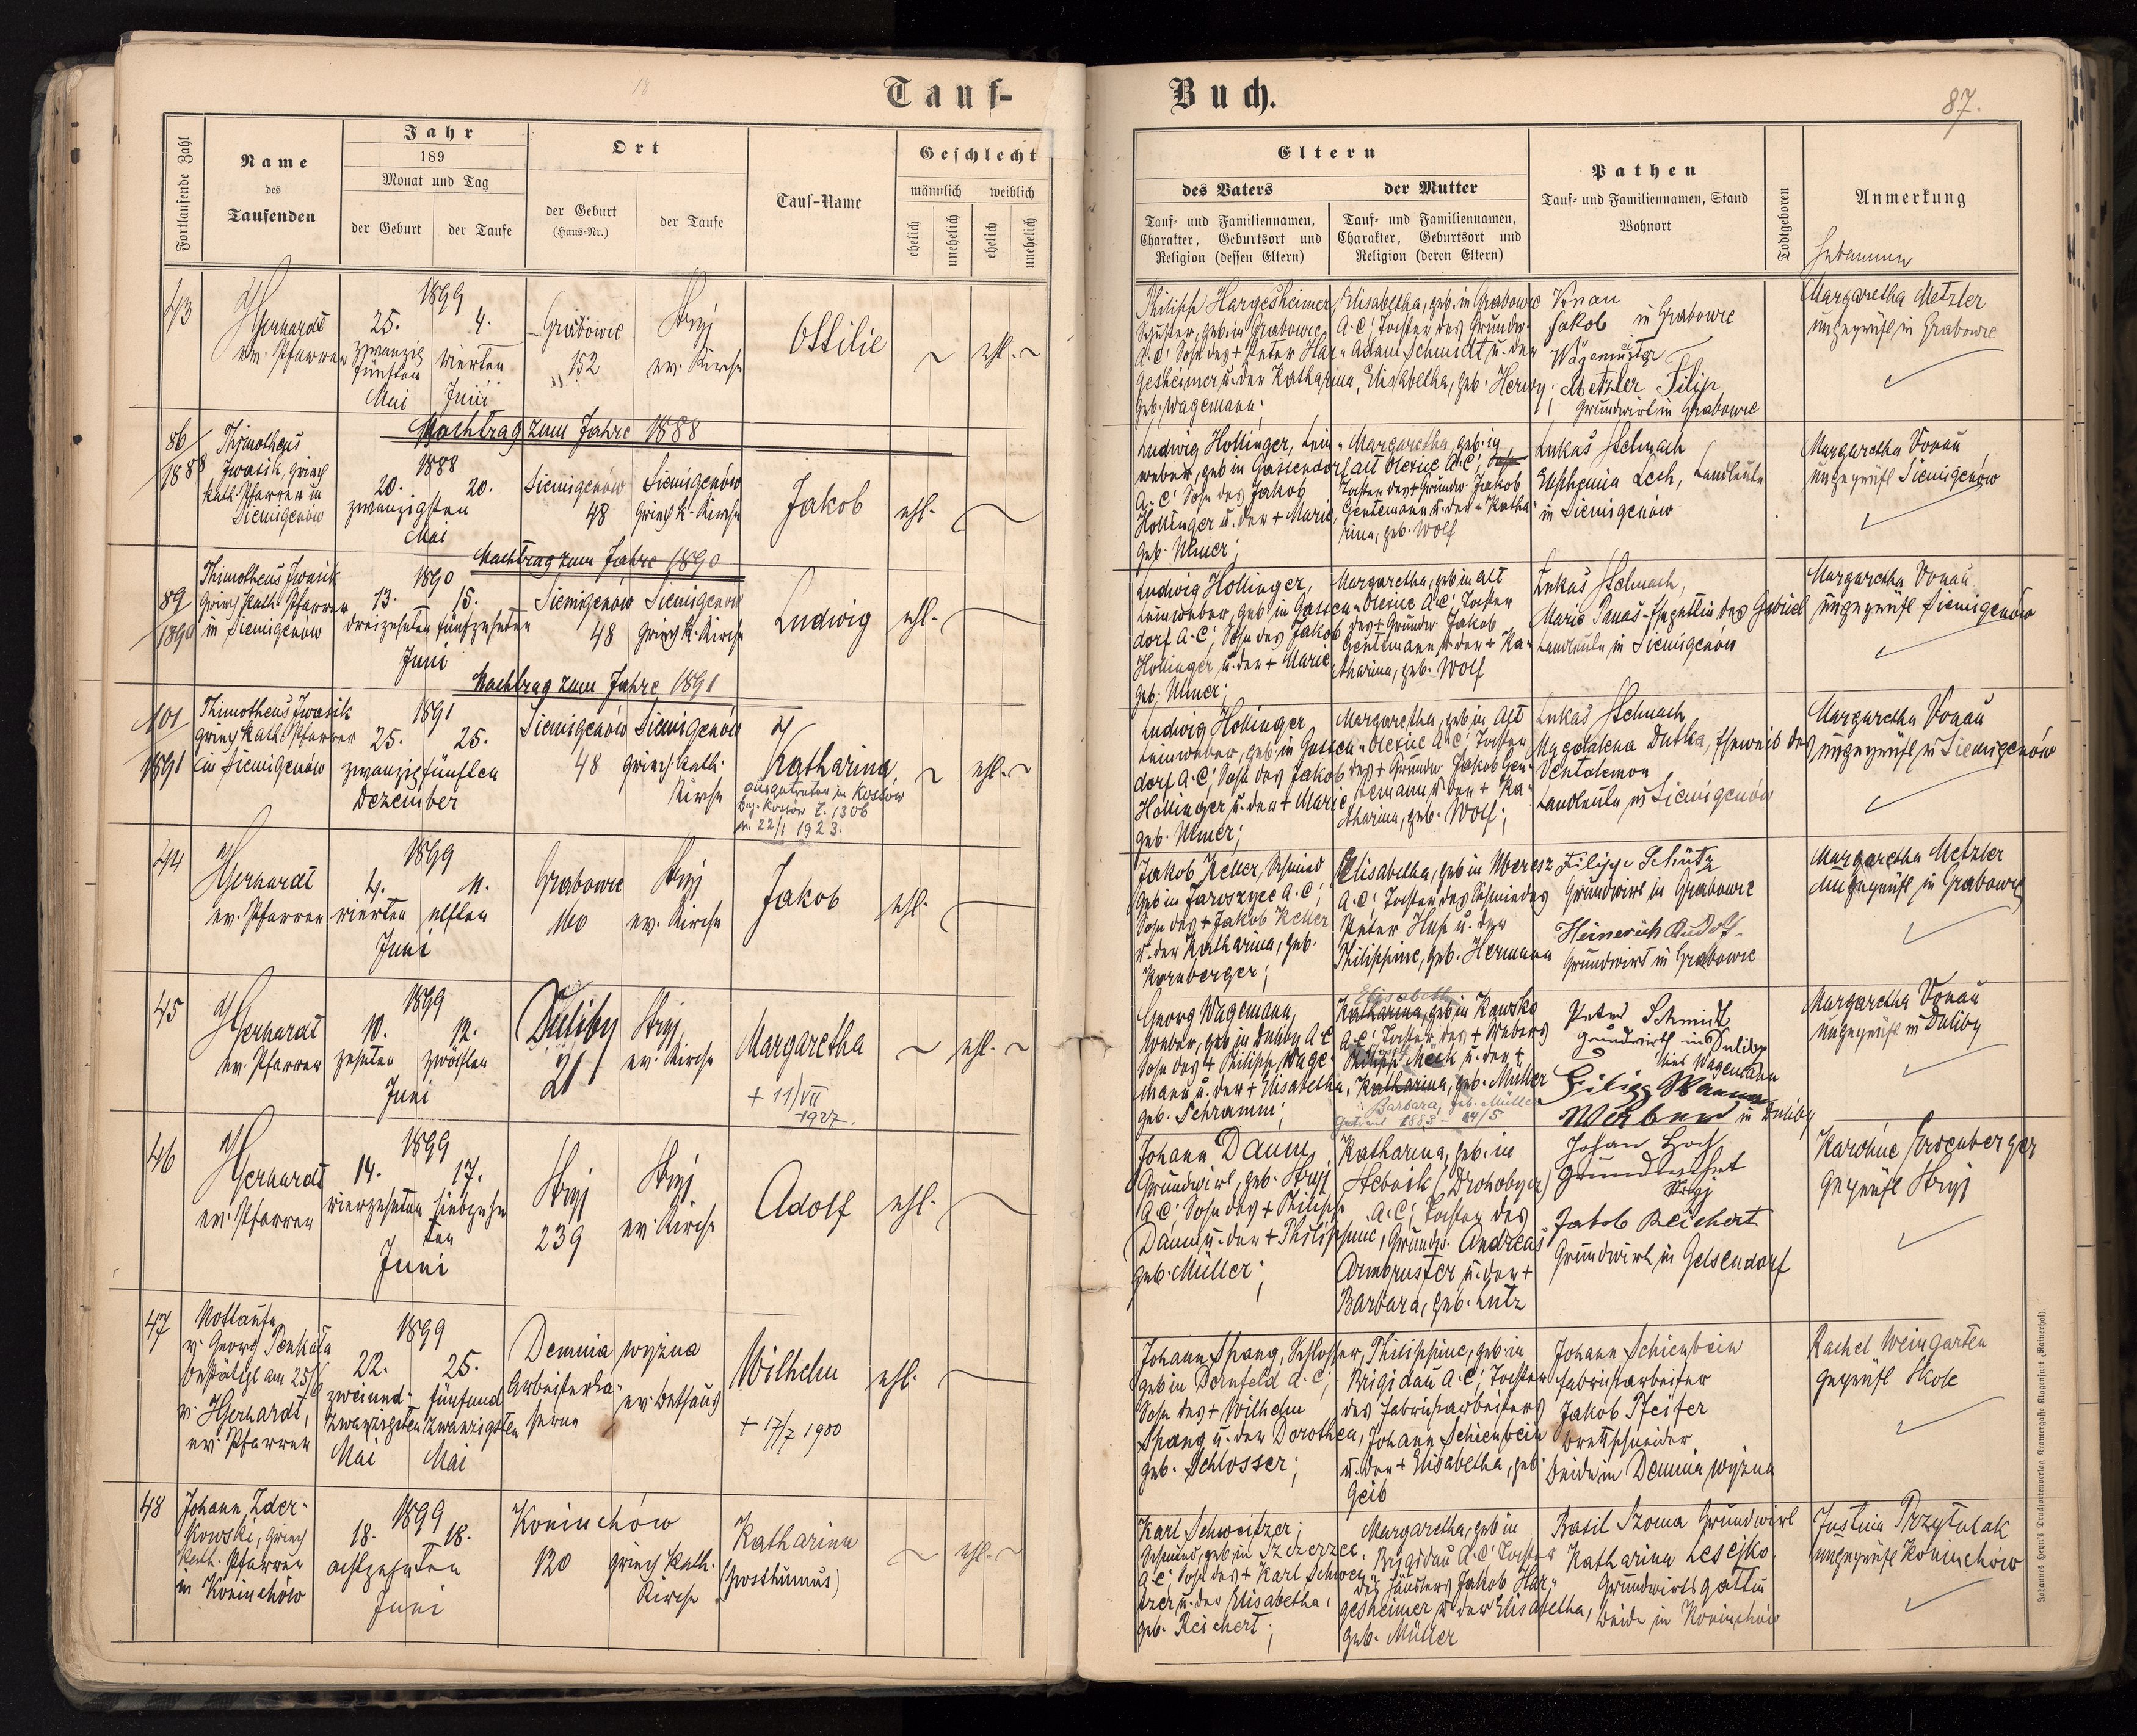 18
Tauf-
Buch.
87.
Fortlaufende Zahl
Name
des
Taufenden
Jahr
189
Monat und Tag
der Geburt
der Taufe
Ort
der Geburt
(Haus-Nr.)
der Taufe
Tauf-Name
Geschlecht
männlich weiblich
ehelich
unehelich
ehelich
unehelich
Eltern
des Vaters
der Mutter
Tauf- und Familiennamen,
Charakter, Geburtsort und
Religion (dessen Eltern)
Tauf- und Familiennamen,
Charakter, Geburtsort und
Religion (deren Eltern)
Pathen
Tauf- und Familiennamen, Stand
Wohnort
Todtgeboren
Anmerkung
Hebamme
43
Hgerhardt
ev. Pfarrer
1899
25. 4.
zwanzig
fünften vierten
Mai Juni
Grabowce
152
Stryj
ev. Kirche
Ottilie
ehl.
Philipp Hargesheimer,
Schuster, geb. in Grabowce
A.C; Sohn des + Peter Har-
gesheimer u. der Katharina,
geb. Wagemann;
Elisabetha, geb. in Grabowce
A.C; Tochter des Grundw.
Adam Schmidt u. der
Elisabetha, geb. Herwy;
Vonau
Jakob in Grabowce
Metzler Filip
Grundwirt in Grabowce
Margaretha Metzler
ungeprüft in Grabowce
Nachtrag zum Jahre 1888
86
1888
Thimotheus
Iwasik, griech
kath. Pfarrer in
Siemigenów
1888
20. 20.
zwanzigsten
Mai
Siemigenów
48
Siemigenów
griech k. Kirche
Jakob
ehl.
Ludwig Hollinger, Lein-
weber, geb in Gassendorf
A.C; Sohn des Jakob
Hollinger u. der + Marie,
geb. Ulmer;
Margaretha, geb. in
alt Olexice A.C;
Tochter des + Grundw. Jakob
Gentemann u. der + Katha-
rina, geb. Wolf
Lukas Stelmach
Euphemia Lech, Landleute
in Siemigenów
Margaretha Vonau
ungeprüft Siemigenów
Nachtrag zum Jahre 1890
89
1890
Thimotheus Iwasik
griech kath. Pfarrer
in Siemigenów
1890
13. 15.
dreizehnten fünfzehnten
Juni
Siemigenów
48
Siemigenów
griech k. Kirche
Ludwig
ehl.
Ludwig Hollinger,
Leinweber, geb in Gassen-
dorf A.C; Sohn des Jakob
Hollinger u. der + Marie
geb. Ulmer;
Margaretha, geb in alt
Olexice A.C; Tochter
des + Grundw. Jakob
Gentemann u. der + Ka-
tharina, geb. Wolf
Lukas Stelmach,
Marie Panas - Ehegattin des Gabriel
Landleute in Siemigenów
Margaretha Vonau
ungeprüft Siemigenów
Nachtrag zum Jahre 1891
101
1891
Thimotheus Iwasik
griech kath. Pfarrer
in Siemigenów
1891
25. 25.
zwanzigfünften
Dezember
Siemigenów
48
Siemigenów
griech-kath.
Kirche
Katharina,
ausgetreten in Kossow
Bez. Kossów Z. 1306
v. 22/1 1923.
ehl.
Ludwig Hollinger,
Leinweber, geb in Gassen-
dorf A.C; Sohn des Jakob
Hollinger u. der + Marie
geb. Ulmer;
Margaretha, geb in Alt
Olexice A.C; Tochter
des + Grundw Jakob Gen-
temann u. der + Ka-
tharina, geb. Wolf;
Lukas Stelmach
Magdalena Dutka, Eheweib des
Pentalemon
Landleute in Siemigenów
Margaretha Vonau
ungeprüft in Siemigenów
44
Hgerhardt
ev. Pfarrer
1899
4. 11.
vierten elften
Juni
Grabowce
160
Stryj
ev. Kirche
Jakob
ehl.
Jakob Keller, Schmied
geb in Jaroszyce A.C;
Sohn des + Jakob Keller
u. der Katharina, geb.
Kornberger;
Elisabetha, geb in
A.C; Tochter des Schmiedes
Peter Huh u. der
Philippine, geb. Hermann
Filipp Schütz
Grundwirt in Grabowce
Heinerich Rudolf
Grundwirt in Grabowce
Margaretha Metzler
ungeprüft in Grabowce
45
Hgerhardt
ev. Pfarrer
1899
10. 12.
zehnten zwölften
Juni
Duliby
21
Stryj
ev. Kirche
Margaretha
+ 11/VII
1927.
ehl.
Georg Wagemann,
Weber, geb in Duliby A.C
Sohn des + Philipp Wage-
mann u. der + Elisabetha,
geb. Schramm;
Elisabeth
Katharina, geb in Kawsko
A.C; Tochter des + Webers
Philipp Mock u. der +
Katharina, geb. Müller
Barbara, geb. Müller
Getraut 1883 - 24/5
Peter Schmidt
Grundwirth in Duliby
Weber in Duliby
Margaretha Vonau
ungeprüft in Duliby
46
Hgerhardt
ev. Pfarrer
1899
14. 17.
vierzehnten siebzehn
ten
Juni
Stryj
239
Stryj
ev. Kirche
Adolf
ehl.
Johann Daum,
Grundwirt, geb. Stryj
A.C; Sohn des + Philipp
Daum u. der + Philippine,
geb. Müller;
Katharina, geb. in
Stebnik (Drohobycz)
A.C; Tochter des
Grundw. Andreas
Armbruster u. der +
Barbara, geb. Lutz
Johan Hoch
Grundwirt
Stryj
Jakob Reichert
Grundwirt in Gelsendorf
Karoline
geprüft Stryj
47
Nottaufe
v. Georg Penkala
bestätigt am 25/6
v. Hgerhardt,
ev. Pfarrer
1899
22. 25.
zweiund- fünfund
zwanzigsten zwanzigsten
Mai Mai
Demnia wyzna
Arbeiterka-
serne
ev. Bethaus
Wilhelm
+ 17/7 1900
ehl.
Johann Spang, Schlosser,
geb in Dornfeld A.C;
Sohn des + Wilhelm
Spang u. der Dorothea,
geb. Schlosser;
Philippine, geb. in
Brigidau A.C; Tochter
des Fabriksarbeiters
Johann Schienbein
u. der + Elisabetha, geb.
Geib
Johann Schienbein
Fabriksarbeiter
Jakob Pfeifer
Brettschneider
beide in Demnia wyzna
Rachel Weingarten
geprüft Skole
48
Johann Zder-
kowski, griech
kath. Pfarrer
in Koniuchów
1899
18. 18.
achtzehnten
Juni
Koniuchów
120
griech kath.
Kirche
Katharina
(posthumus)
ehl.
Karl Schweitzer;
Schmied, geb in Szczerzec
A.C; Sohn des + Karl Schwei-
tzer u. der Elisabetha,
geb. Reichert;
Margaretha, geb in
Brigidau A.C; Tochter
des Händlers Jakob Har-
gesheimer u. der Elisabetha,
geb. Müller
Basil Szoma Grundwirt
Katharina Lesejko
Grundwirtsgattin
beide in Koniuchów
Justina Przytulak
ungeprüft Koniuchów
Johannes Heyn's Drucksortenverlag Kramergasse Klagenfurt (Mainerhof).